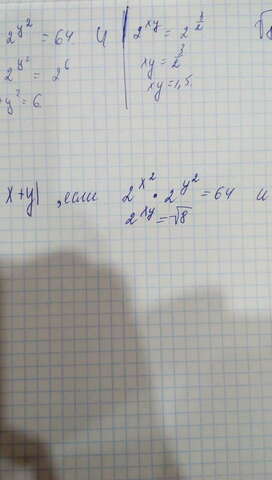 2^{y^2} = 64 и | 2^{xy} = 2^{\frac{3}{2}} √8
2^{y^2} = 2^6 xy = \frac{3}{2}
+y^2 = 6 xy = 1,5.
x+y|, если 2^{x^2} · 2^{y^2} = 64 и
2^{xy} = √8